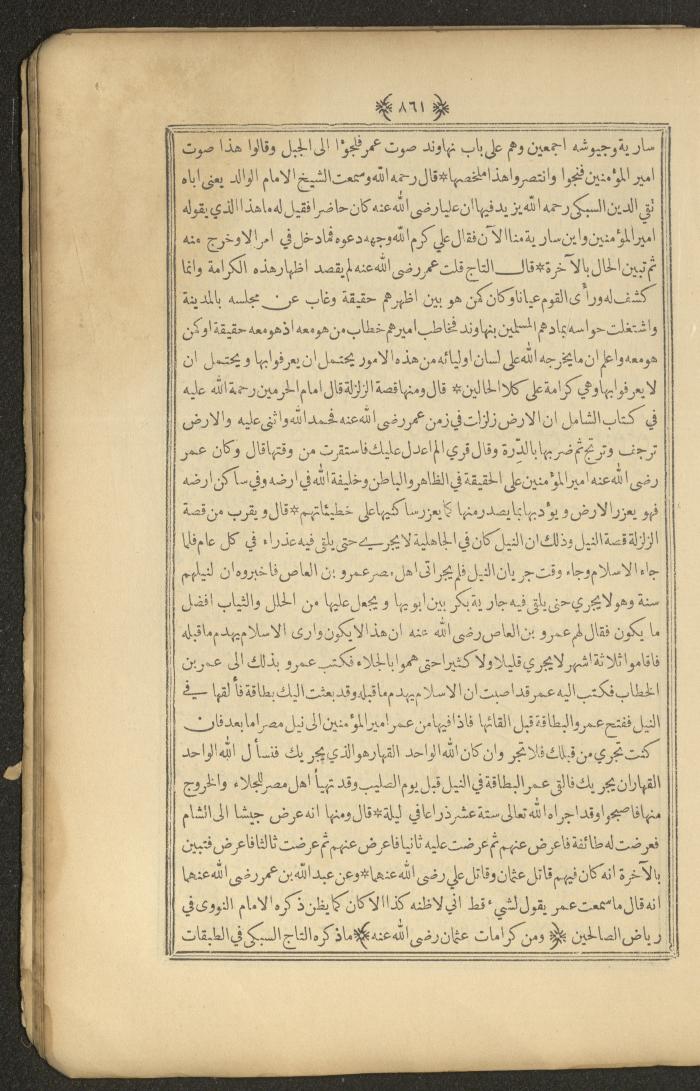 ﴿ ٨٦١ ﴾
سارية وجيوشه اجمعين وهم على باب نهاوند صوت عمر فلجؤا الى الجبل وقالوا هذا صوت
امير المؤمنين فنجوا وانتصروا هذا ملخصها * قال رحمه الله وسمعت الشيخ الامام الوالد يعنى اباه
تقي الدين السبكى رحمه الله يزيد فيها ان عليا رضى الله عنه كان حاضرا فقيل له ما هذا الذي يقوله
امير المؤمنين واين سارية منا الآن فقال علي كرم الله وجهه دعوه فما دخل في امر الا وخرج منه
ثم تبين الحال بالآخرة * قال التاج قلت عمر رضى الله عنه لم يقصد اظهار هذه الكرامة وانما
كشف له ورأى القوم عيانا وكان كمن هو بين اظهرهم حقيقة وغاب عن مجلسه بالمدينة
واشتغلت حواسه بما دهم المسلمين بنهاوند فخاطب اميرهم خطاب من هو معه اذ هو معه حقيقة او كمن
هو معه واعلم ان ما يخرجه الله على لسان اوليائه من هذه الامور يحتمل ان يعرفوا بها ويحتمل ان
لا يعرفوا بها وهي كرامة على كلا الحالين * قال ومنها قصة الزلزلة قال امام الحرمين رحمة الله عليه
في كتاب الشامل ان الارض زلزلت في زمن عمر رضى الله عنه فحمد الله واثنى عليه والارض
ترجف وترتج ثم ضربها بالدِّرة وقال قري الم اعدل عليك فاستقرت من وقتها قال وكان عمر
رضى الله عنه امير المؤمنين على الحقيقة في الظاهر والباطن وخليفة الله في ارضه وفي ساكن ارضه
فهو يعزر الارض ويؤدبها بما يصدر منها كما يعزر ساكنيها على خطيئاتهم * قال ويقرب من قصة
الزلزلة قصة النيل وذلك ان النيل كان في الجاهلية لا يجري حتى يلقى فيه عذراء في كل عام فلما
جاء الاسلام وجاء وقت جريان النيل فلم يجر اتى اهل مصر عمرو بن العاص فاخبروه ان لنيلهم
سنة وهو لا يجري حتى يلقى فيه جارية بكر بين ابويها ويجعل عليها من الحلل والثياب افضل
ما يكون فقال لهم عمرو بن العاص رضى الله عنه ان هذا لا يكون وارى الاسلام يهدم ما قبله
فاقاموا ثلاثة اشهر لا يجري قليلا ولا كثيرا حتى هموا بالجلاء فكتب عمرو بذلك الى عمر بن
الخطاب فكتب اليه عمر قد اصبت ان الاسلام يهدم ما قبله وقد بعثت اليك بطاقة فألقها في
النيل ففتح عمرو البطاقة قبل القائها فاذا فيها من عمر امير المؤمنين الى نيل مصر اما بعد فان
كنت تجري من قبلك فلا تجر وان كان الله الواحد القهار هو الذي يجريك فنسأل الله الواحد
القهار ان يجريك فالقى عمر البطاقة في النيل قبل يوم الصليب وقد تهيأ اهل مصر للجلاء والخروج
منها فاصبحوا وقد اجراه الله تعالى ستة عشر ذراعا في ليلة * قال ومنها انه عرض جيشا الى الشام
فعرضت له طائفة فاعرض عنهم ثم عرضت عليه ثانيا فاعرض عنهم ثم عرضت ثالثا فاعرض فتبين
بالآخرة انه كان فيهم قاتل عثمان وقاتل علي رضى الله عنهما * وعن عبد الله بن عمر رضى الله عنهما
انه قال ما سمعت عمر يقول لشيء قط اني لاظنه كذا الا كان كما يظن ذكره الامام النووى في
رياض الصالحين ﴿ ومن كرامات عثمان رضى الله عنه ﴾ ما ذكره التاج السبكى في الطبقات